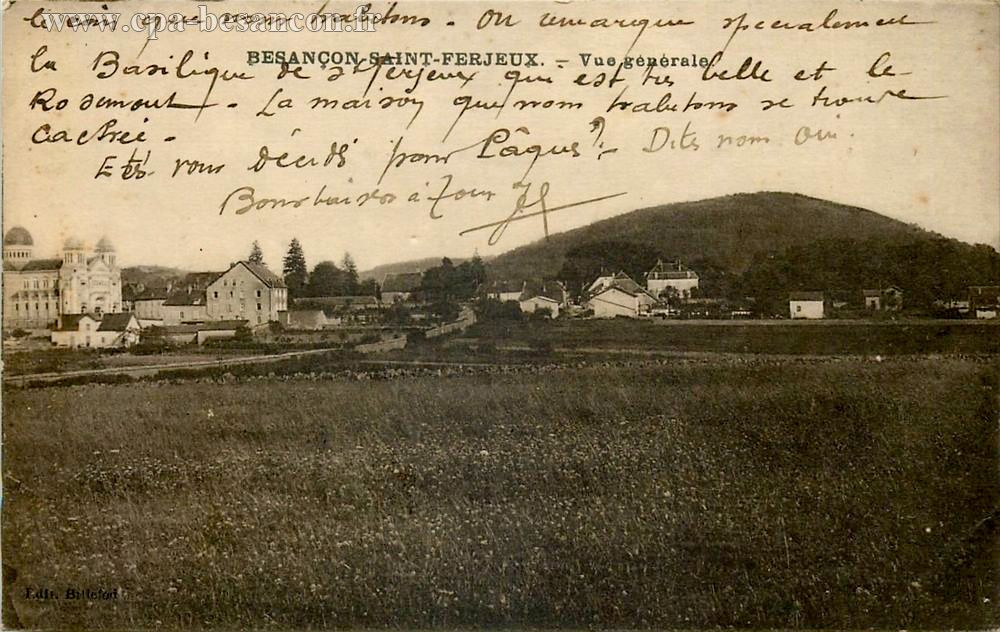 le coin que nous habitons. On remarque specialement
www.cpa-besancon.fr
BESANÇON-SAINT-FERJEUX. — Vue générale
la Basilique de St Ferjeux qui est très belle et le
Rosemont - La maison que nous habitons se trouve
cachée -
Etes vous décidés pour Pâques? - Dites nous oui.
Bons baisers à tous
Edit. Billefod